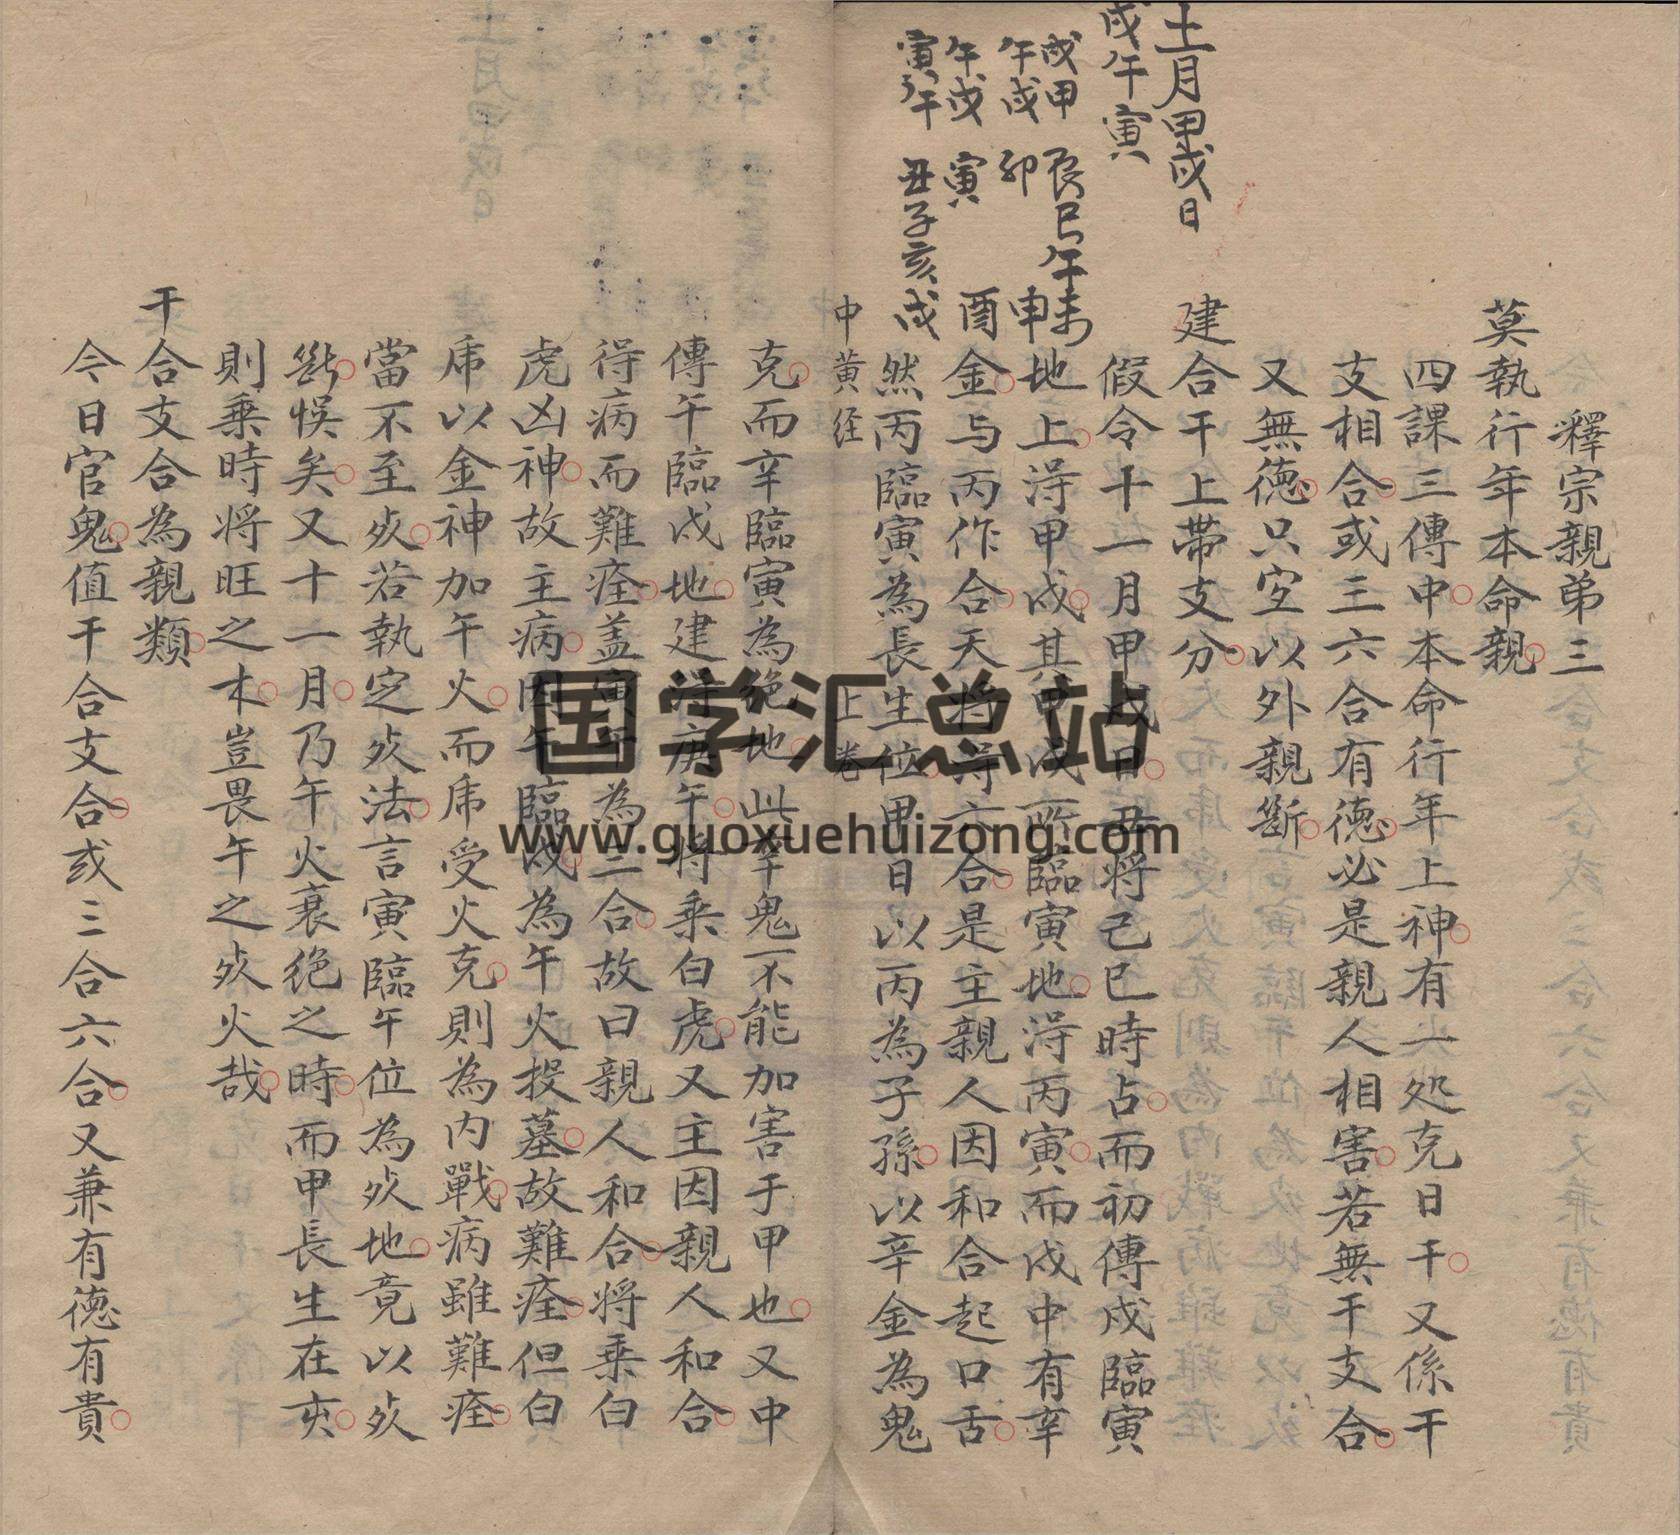 釋宗親弟三
莫執行年本命親
四課三傳中本命行年上神有一処克日干又係干
支相合或三六合有德必是親人相害若無干支合
又無德只宜以外親斷
建合干上帶支分
假令十一月甲戌日丑將己巳時占而初傳戌臨寅
地上得甲戌其甲戌所臨寅地得丙寅而戌中有辛
金与丙作合天將得六合是主親人因和合起口舌
然丙臨寅為長生位甲日以丙為子孫以辛金為鬼
十一月甲戌日
戌午寅
戌甲 辰巳午未
午戌 卯 申
午戌 寅 酉
寅午 丑子亥戌
中黄经 上卷
克而辛臨寅為絶地此辛鬼不能加害于甲也又中
傳午臨戌地建得庚午將乘白虎又主因親人和合
得病而難痊盖寅午為三合故曰親人和合將乘白
虎凶神故主病因午臨戌為午火投墓故難痊但白
虎以金神加午火而虎受火克則為内戰病雖難痊
當不至死若執定死法言寅臨午位為死地竟以死
斷悞矣又十一月乃午火衰絶之時而甲長生在亥
則乘時將旺之木豈畏午之死火哉
干合支合為親類
今日官鬼值干合支合或三合六合又兼有德有貴
国学汇总站
www.guoxuehuizong.com